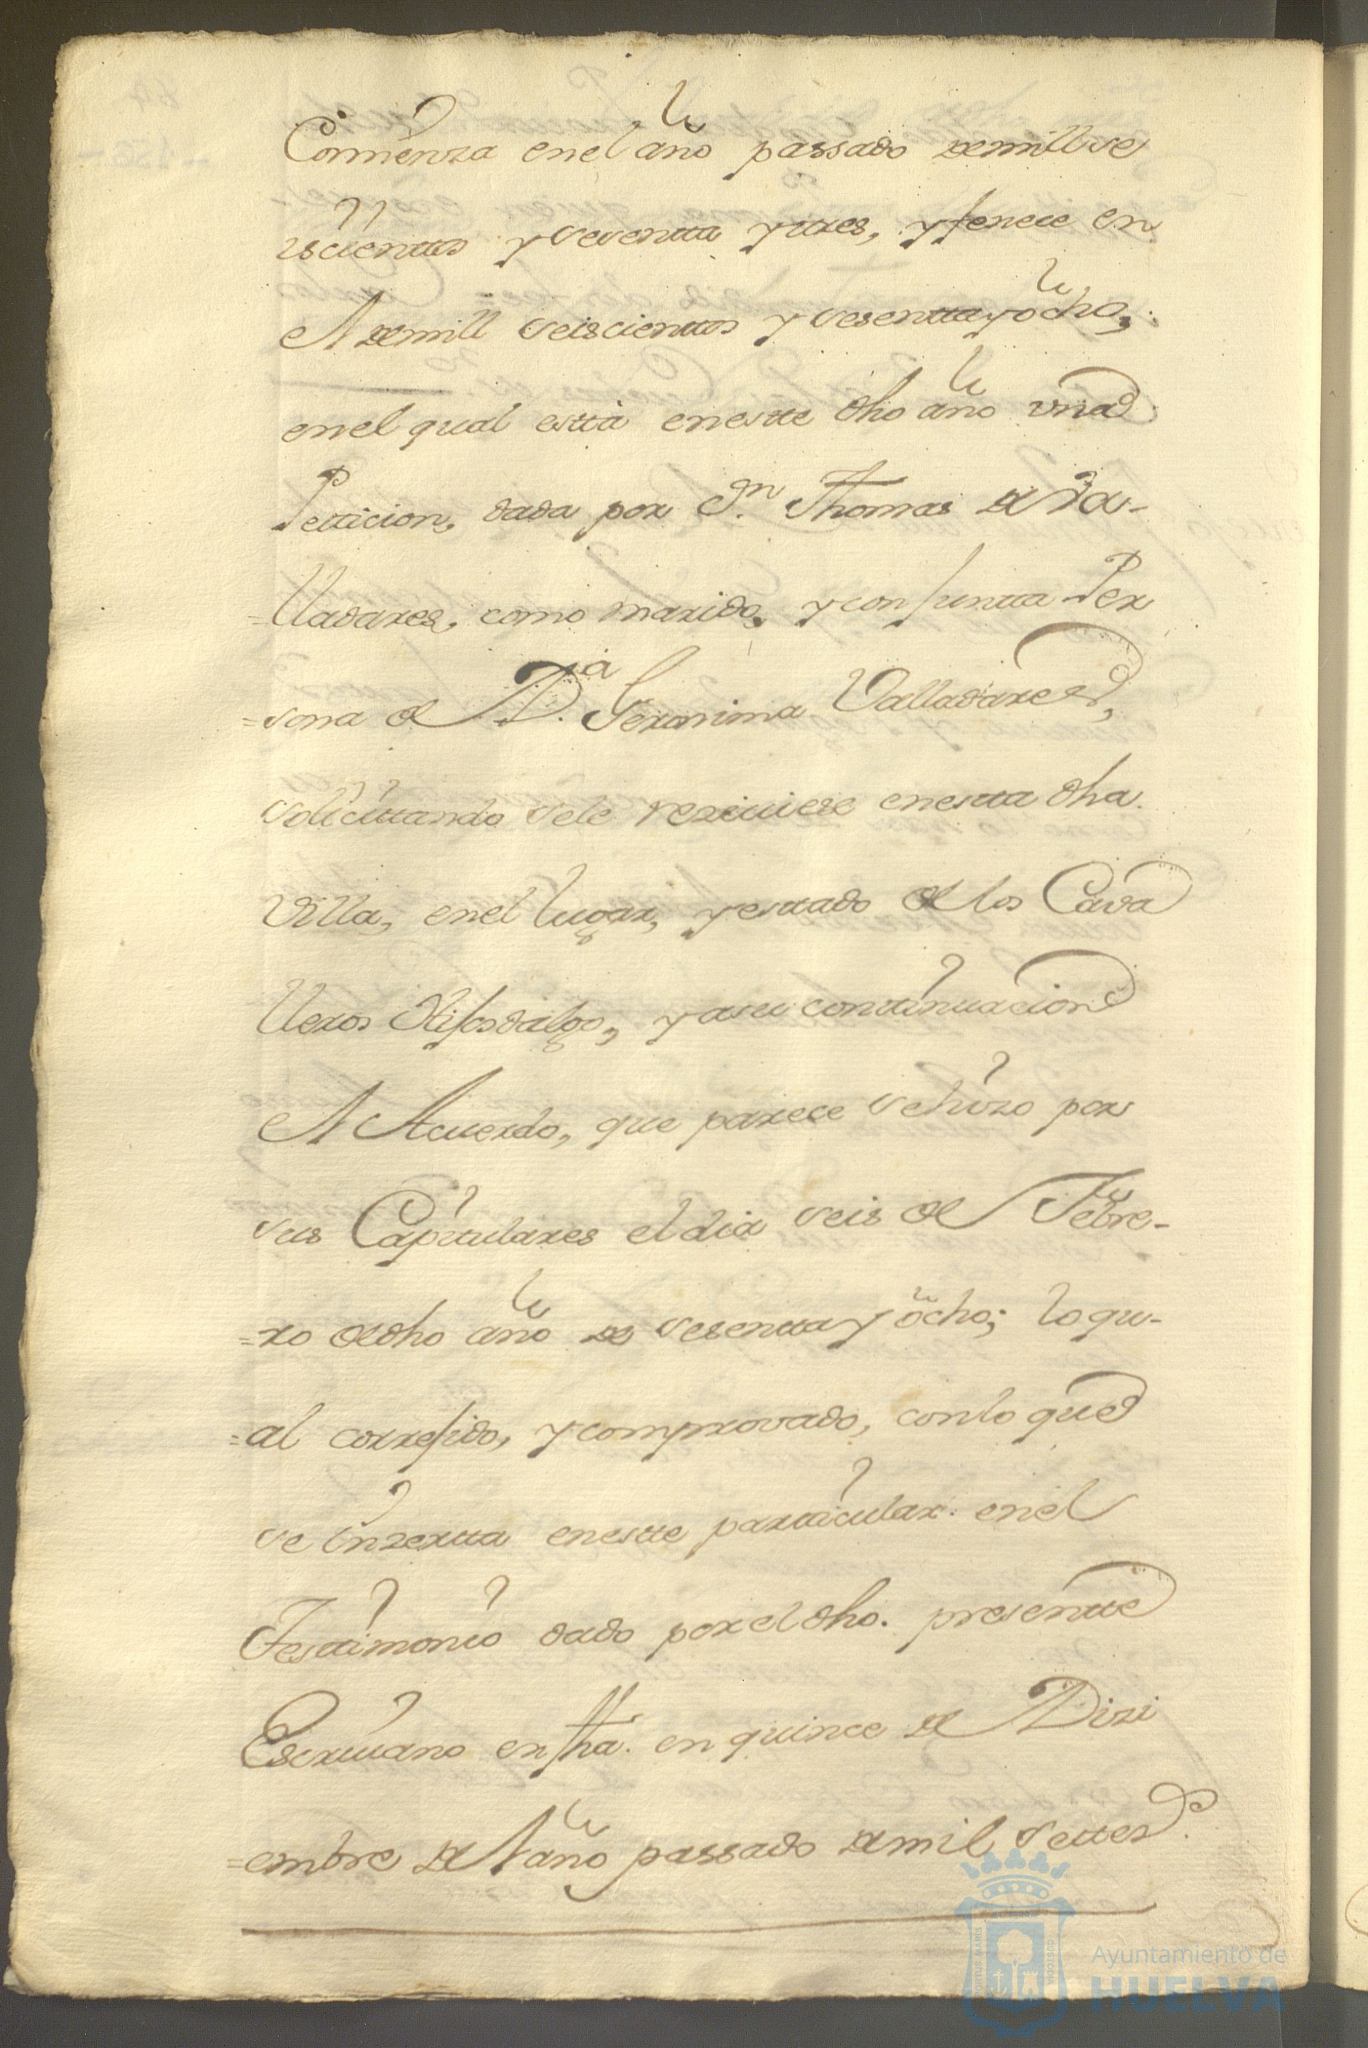 Comienza en el año passado de mill se
iscienttos y sesentta y tres, y fenece en
el de mill seiscienttos y sesentta y ocho,
en el qual estta en estte dho año una
Petticion, dada por Dn. Thomas de Va-
=lladares, como marido, y conjuntta Per
=sona de Da. Geronima Valladares,
solicittando se le reziviese en estta dha.
Villa, en el lugar, y esttado de los Cava
lleros Hijosdalgo, y a su conttinuacion
el Acuerdo, que parece se hizo por
sus Capitulares el dia seis de Febre-
=ro de dho año de sesentta y ocho; lo qu-
=al correjido, y comprovado, con lo que
se inzertta en estte partticular en el
Testtimonio dado por el dho. presentte
Escrivano en fha. en quince de Dizi
=embre del año passado de mil settes.
Ayuntamiento de
HUELVA